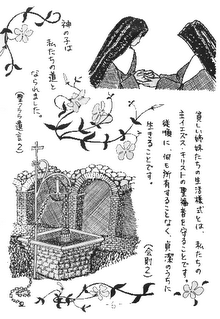 神の子は
私たちの道と
なられました。
(聖クララ遺言2)
貧しい姉妹たちの生活様式とは、私たちの
主イエズス・キリストの聖福音を守ることです。
従順に、何も所有することなく、貞潔のうちに
生きることです。
(会則2)
6